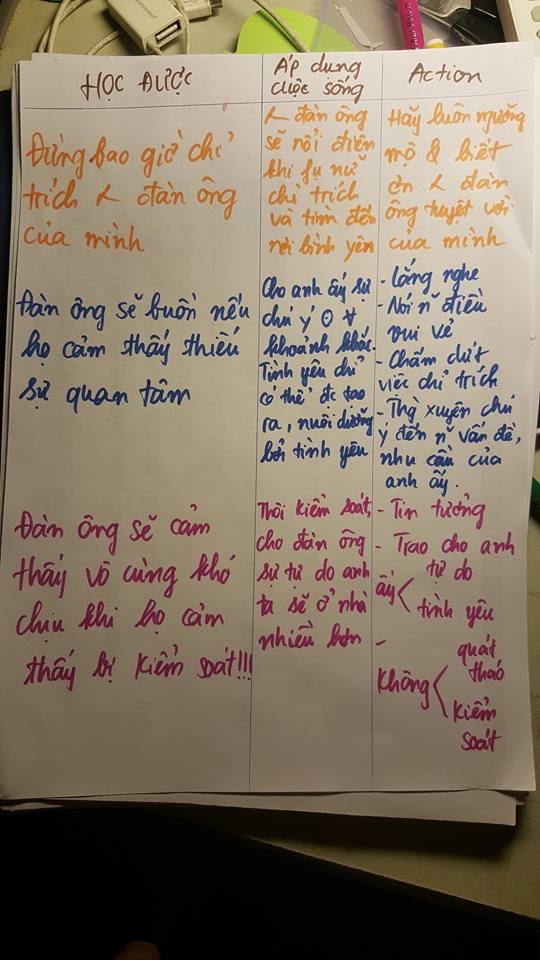 HỌC ĐƯỢC
Áp dụng
cuộc sống
Action
Đừng bao giờ chỉ
trích < đàn ông
của mình
< đàn ông
sẽ nổi điên
khi fụ nữ
chỉ trích
và tìm đến
nơi bình yên
Hãy luôn ngưỡng
mộ & biết
ơn < đàn
ông tuyệt vời
của mình
Đàn ông sẽ buồn nếu
họ cảm thấy thiếu
sự quan tâm
Cho anh ấy sự
chú ý ʘ ∀
khoảnh khắc.
Tình yêu chỉ
có thể đc tạo
ra, nuôi dưỡng
bởi tình yêu
- Lắng nghe
- Nói ~ điều
vui vẻ
- Chấm dứt
việc chỉ trích
- Thg xuyên chú
ý đến ~ vấn đề,
nhu cầu của
anh ấy.
Đàn ông sẽ cảm
thấy vô cùng khó
chịu khi họ cảm
thấy bị kiểm soát!!!
Thôi kiểm soát,
cho đàn ông
sự tự do anh
ta sẽ ở nhà
nhiều hơn
- Tin tưởng
- Trao cho anh
ấy < tự do
tình yêu
- Không < quát
tháo
kiểm
soát